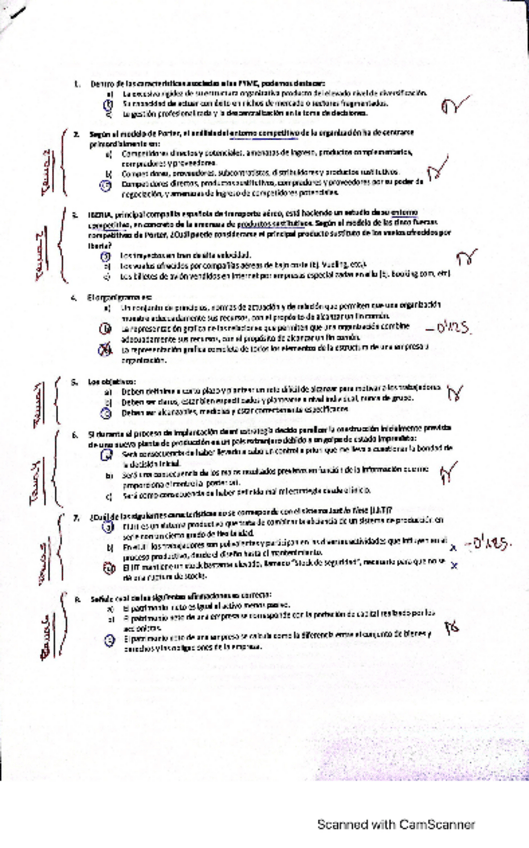 1. Dentro de las características asociadas a las PYME, podemos destacar:
a) La excesiva rigidez de su estructura organizativa producto del elevado nivel de diversificación.
b) Su capacidad de actuar con éxito en nichos de mercado o sectores fragmentados.
c) La gestión profesionalizada y la descentralización en la toma de decisiones.
2. Según el modelo de Porter, el análisis del entorno competitivo de la organización ha de centrarse
primordialmente en:
a) Competidores directos y potenciales, amenazas de ingreso, productos complementarios,
compradores y proveedores.
b) Competidores, proveedores, subcontratistas, distribuidores y productos sustitutivos.
c) Competidores directos, productos sustitutivos, compradores y proveedores por su poder de
negociación, y amenazas de ingreso de competidores potenciales.
3. IBERIA, principal compañía española de transporte aéreo, está haciendo un estudio de su entorno
competitivo, en concreto de la amenaza de productos sustitutivos. Según el modelo de las cinco fuerzas
competitivas de Porter, ¿Cuál puede considerarse el principal producto sustituto de los vuelos ofrecidos por
Iberia?
a) Los trayectos en tren de alta velocidad.
b) Los vuelos ofrecidos por compañías aéreas de bajo coste (Ej. Vueling, etc.).
c) Los billetes de avión vendidos en Internet por empresas especializadas en ello (Ej. Booking.com, etc)
4. El organigrama es:
a) Un conjunto de principios, normas de actuación y de relación que permiten que una organización
muestre adecuadamente sus recursos, con el propósito de alcanzar un fin común.
b) La representación gráfica de las relaciones que permiten que una organización combine
adecuadamente sus recursos, con el propósito de alcanzar un fin común.
-0'125.
c) La representación gráfica completa de todos los elementos de la estructura de una empresa u
organización.
5. Los objetivos:
a) Deben definirse a corto plazo y plantear un reto difícil de alcanzar para motivar a los trabajadores
b) Deben ser claros, estar bien especificados y plantearse a nivel individual, nunca de grupo.
c) Deben ser alcanzables, medibles y estar correctamente especificados
6. Si durante el proceso de implantación de mi estrategia decido paralizar la construcción inicialmente prevista
de una nueva planta de producción en un país extranjero debido a un golpe de estado imprevisto:
a) Será consecuencia de haber llevado a cabo un control a priori que me lleva a cuestionar la bondad de
la decisión inicial.
b) Será una consecuencia de los malos resultados previstos en función de la información que me
proporciona el control a posteriori.
c) Será como consecuencia de haber definido mal mi estrategia desde el inicio.
7. ¿Cuál de las siguientes características no se corresponde con el sistema Just In Time (J.I.T)?
a) El JIT es un sistema productivo que trata de combinar la eficiencia de un sistema de producción en
serie con un cierto grado de flexibilidad.
b) En el JIT los trabajadores son polivalentes y participan en las diversas actividades que influyen en el
proceso productivo, desde el diseño hasta el mantenimiento.
x -0'125.
c) El JIT mantiene un stock bastante elevado, llamado "stock de seguridad", necesario para que no se
dé una ruptura de stocks.
x
8. Señale cuál de las siguientes afirmaciones es correcta:
a) El patrimonio neto es igual al activo menos pasivo.
b) El patrimonio neto de una empresa se corresponde con la aportación de capital realizado por los
accionistas.
c) El patrimonio neto de una empresa se calcula como la diferencia entre el conjunto de bienes y
derechos y las obligaciones de la empresa.
Scanned with CamScanner